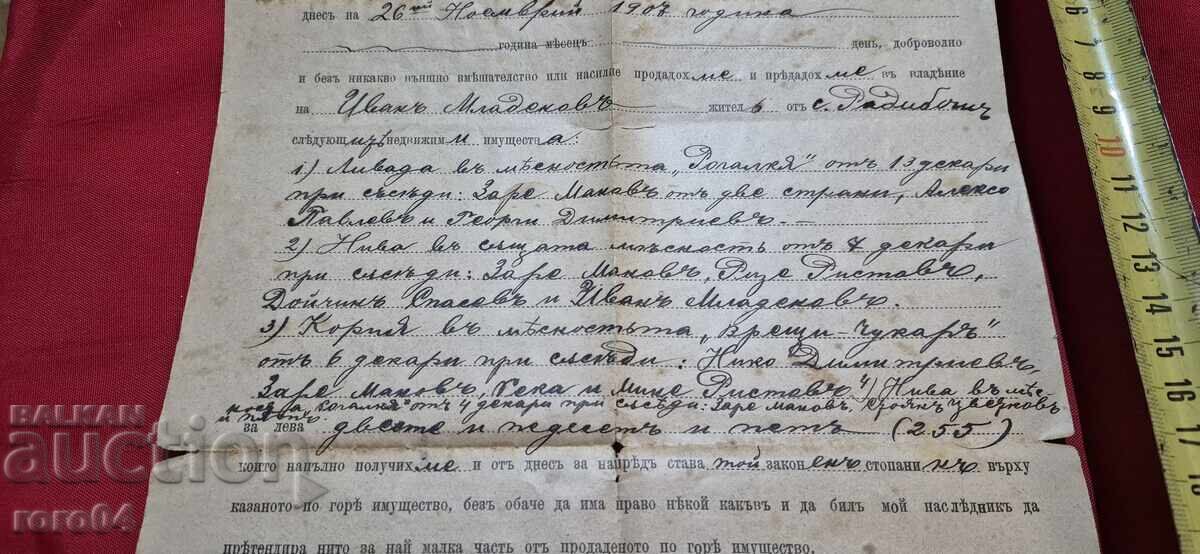 днесъ на 26ий Ноемврий 1907 година
година мѣсецъ день, доброволно
и безъ никакво външно вмѣшателство или насилие продадохме и прѣдадохме въ владѣние
на Иванъ Младеновъ жителъ отъ с. Радибошъ
слѣдующитѣ недвижими имущества:
1) Ливада въ мѣсностьта „Рогалкя" отъ 13 декари
при съсѣди: Заре Маковъ отъ две страни, Алексо
Павлевъ и Георги Димитриевъ. —
2) Нива въ същата мѣсность отъ 7 декари
при съсѣди: Заре Маковъ, Ризе Ристовъ,
Дойчинъ Спасовъ и Иванъ Младеновъ.
3) Кория въ мѣсностьта „Врещи-Чукаръ"
отъ 6 декари при съсѣди: Нико Димитриевъ,
Заре Маковъ, и Мине Ристовъ 4) Нива въ мѣс
ность „Рогалкя" отъ 4 декари при съсѣди: Заре Маковъ, Стоянъ Цветковъ
за лева двесте и педесетъ и петь (255)
които напълно получихме и отъ днесъ за напрѣдъ става той законенъ стопанинъ върху
казаното по горѣ имущество, безъ обаче да има право нѣкой какъвъ и да билъ мой наслѣдникъ да
прѣтендира нито за най малка часть отъ проданеното по горѣ имущество.
BALKAN
auction
roro64
6 7 8 9 10 11 12 13 14 15 16 17